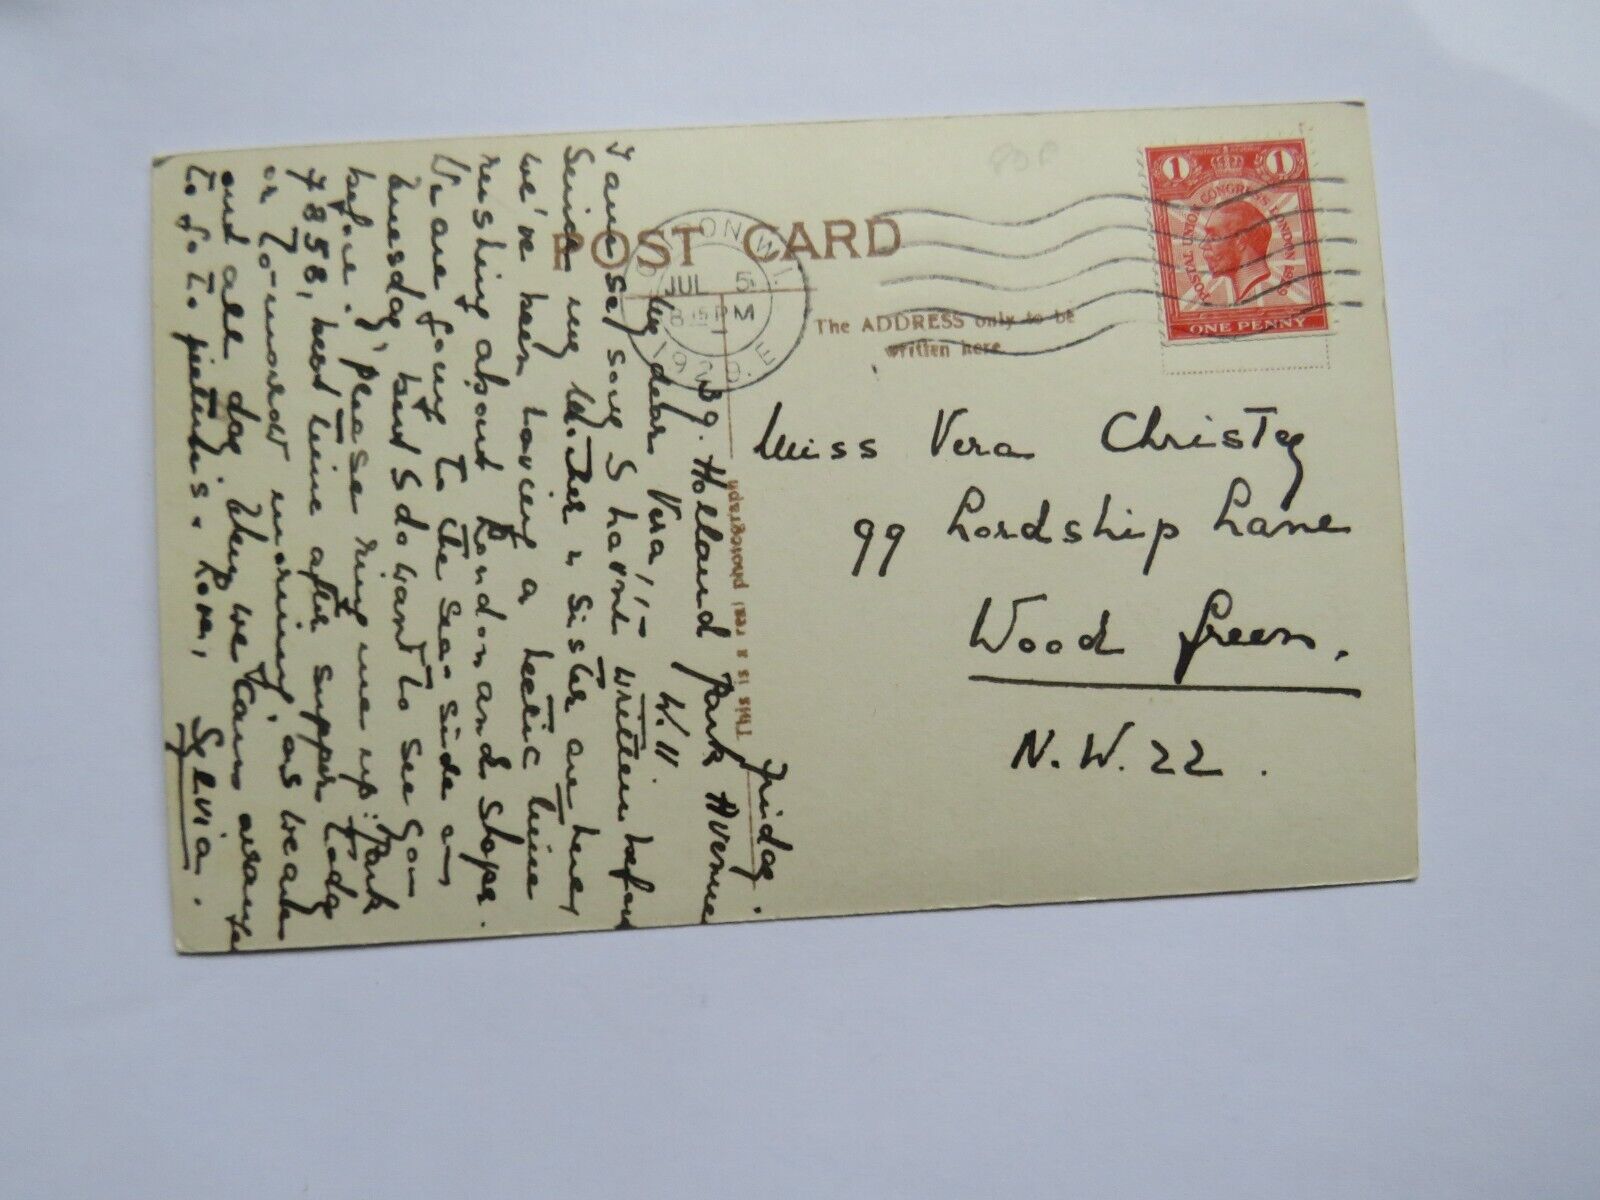 POST CARD
The ADDRESS only to be
written here
This is a real photograph
LONDON. W.11.
JUL 5
8 15 PM
1929. E
1 1
POSTAGE REVENUE
POSTAL UNION CONGRESS LONDON 1929
ONE PENNY
Miss Vera Christey
99 Lordship Lane
Wood Green.
N.W. 22.
Friday.
39. Holland Park Avenue
W.11
My dear Vera,
I am so sorry I haven't written before
Since my Mother & sister are here,
we've been having a hectic time
rushing about London and Shops.
We are going to the sea-side on
Tuesday but I do want to see you
before. Please ring me up: Park
7858, best time after supper today
or to-morrow morning, as we are
out all day. Then we can arrange
to go to pictures. Love,
Sylvia.